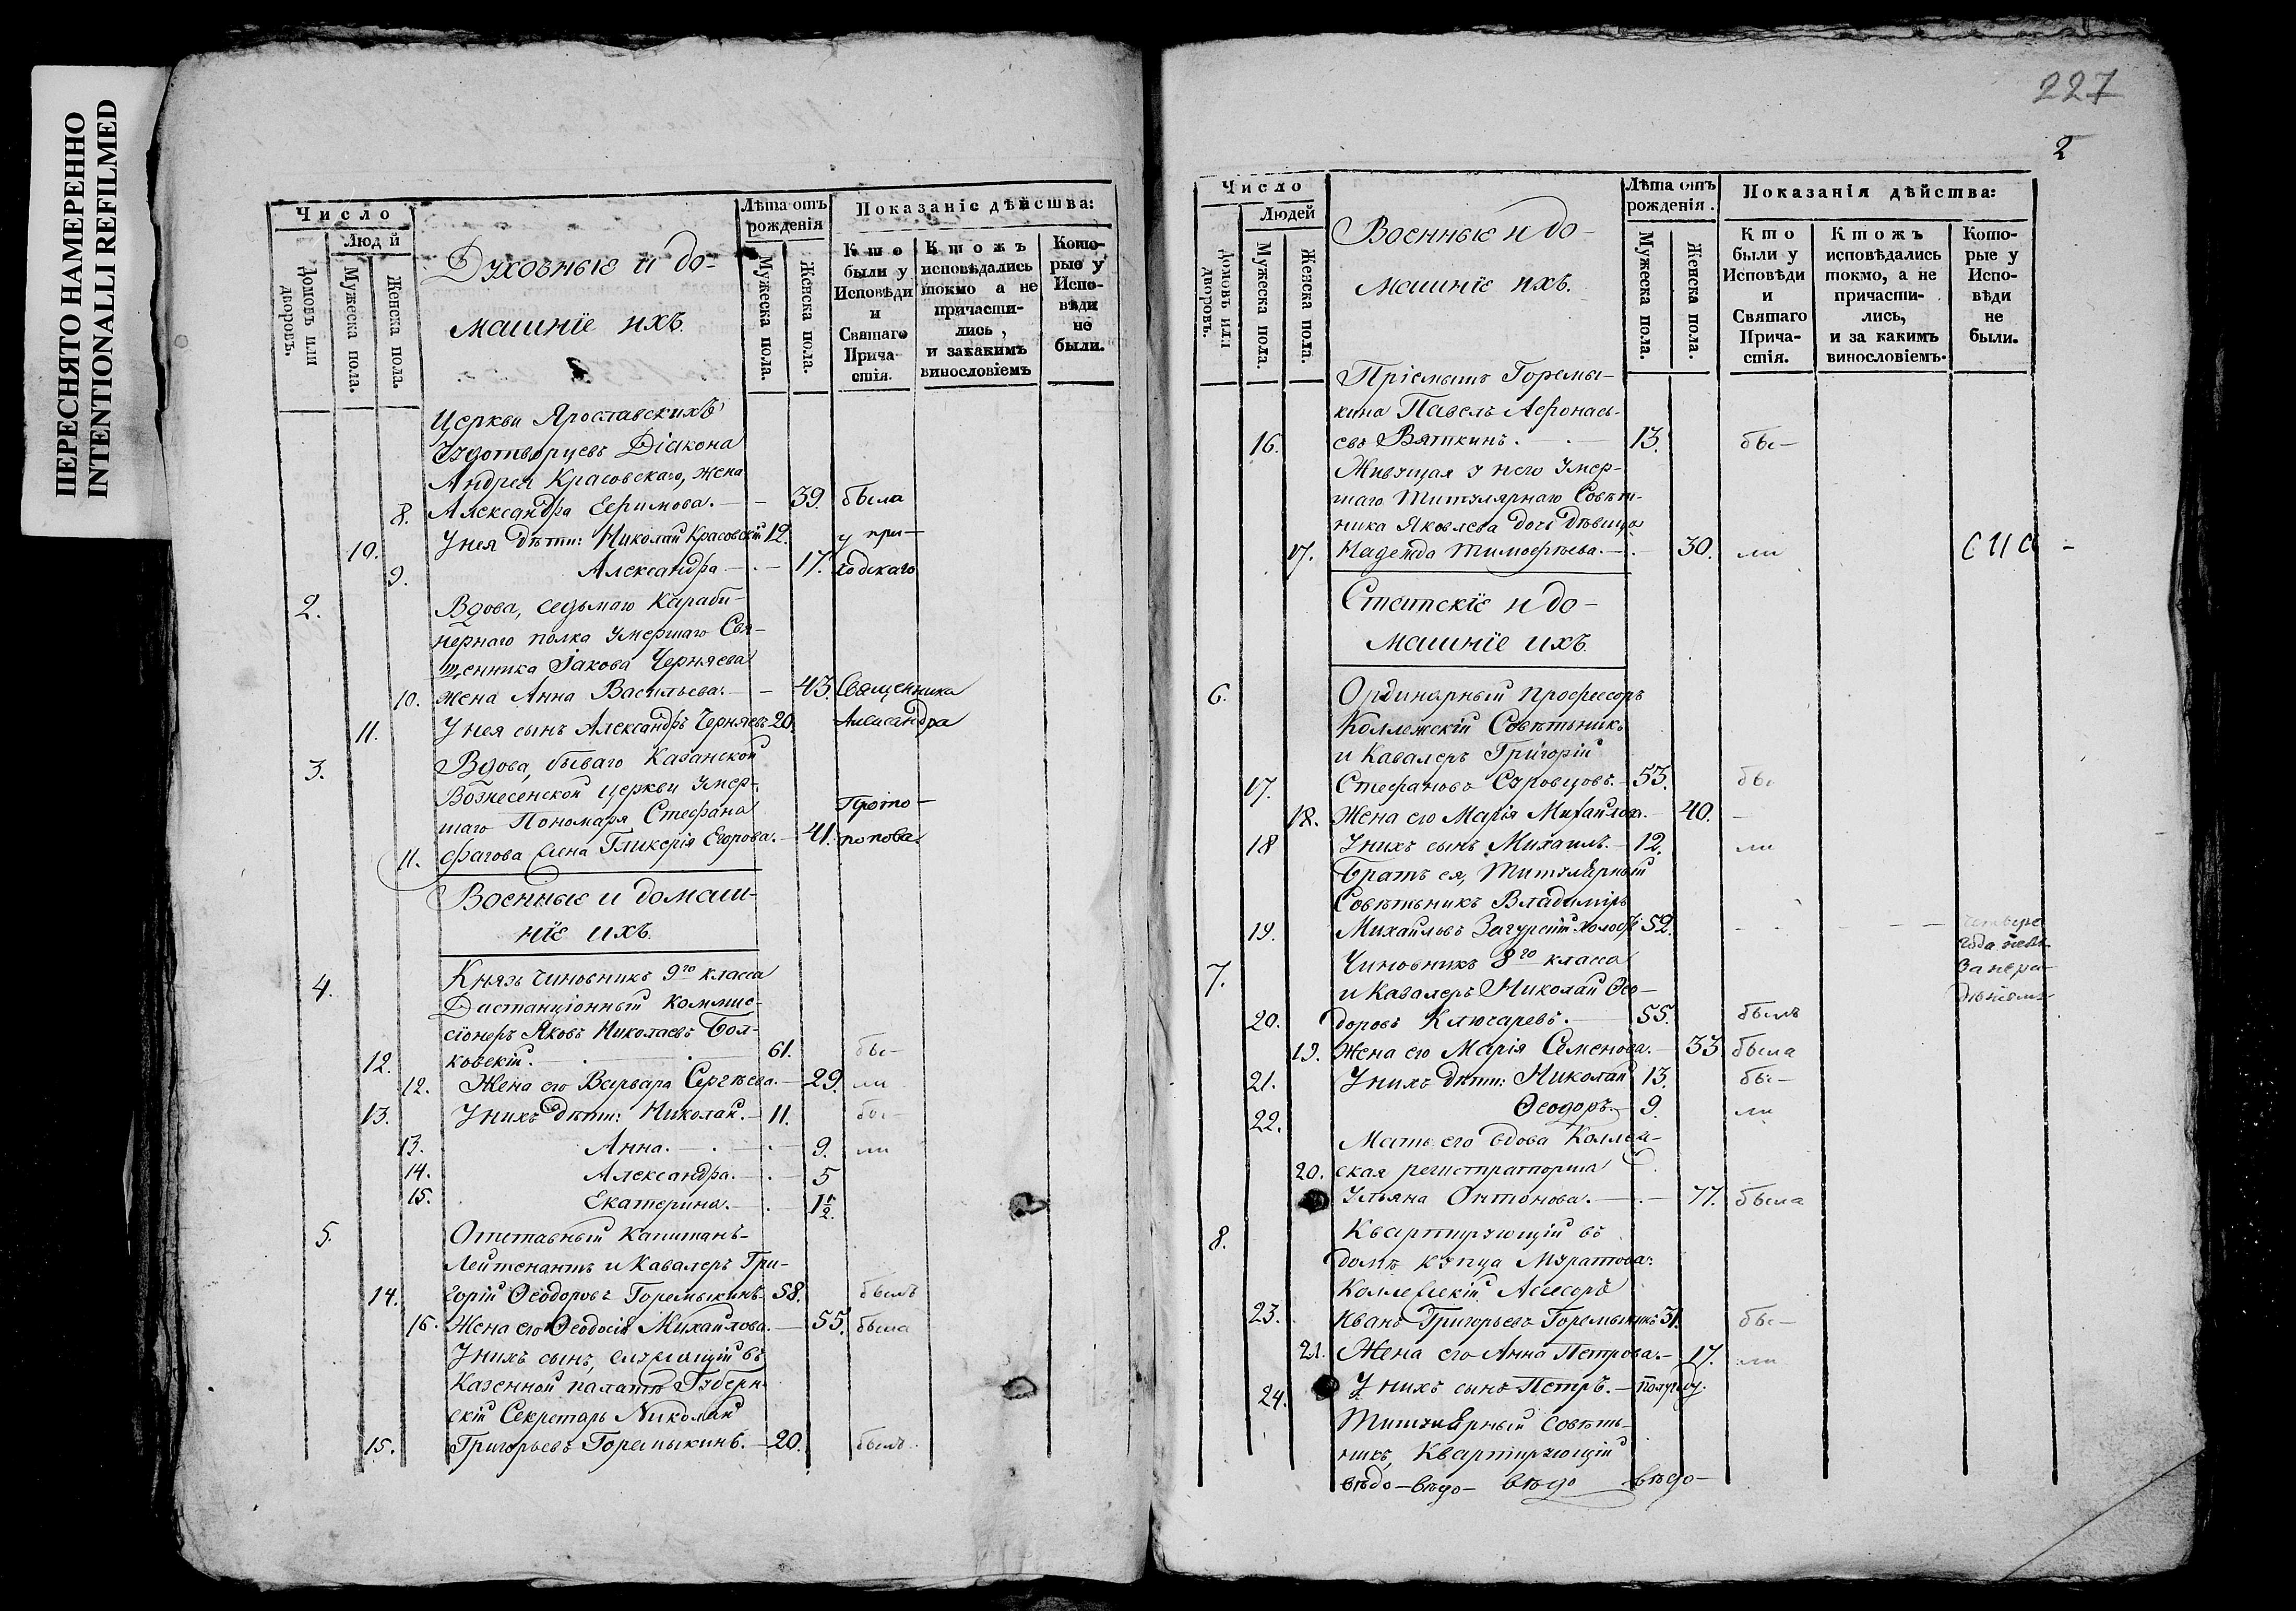 ПЕРЕСНЯТО НАМЕРЕННО
INTENTIONALLI REFILMED
Число
Люд й
Домовъ или дворовъ.
Мужеска пола.
Женска пола.
Духовные и до-
машніе ихъ.
Лѣта отъ рожденія
Мужеска пола.
Женска пола.
Показаніе дѣйства:
Кто были у Исповѣди и Святаго Прича-стія.
Ктожъ исповѣдались токмо а не причасти-лись, и закакимъ винословіемъ
Кото-рые у Испо-вѣди не были.
Церкви Ярославскихъ
Чудотворцевъ Діакона
Андрея Красовскаго, жена
8. Александра Ефимова. — — 39. была
10. У нея дѣти: Николай Красовскій 12. у при-
9. Александра — . — 17. ходскаго
2. Вдова, седьмаго Караби-
нернаго полка умершаго Свя-
щенника Іакова Черняева
10. жена Анна Васильева. — — 43. Священника
11. У нея сынъ Александръ Черняевъ 20. Александра
3. Вдова, бываго Казанской
Вознесенской церкви умер-
шаго Пономаря Стефана Прото-
11. жена Гликерія Егорова. — 41. попова
Военные и домаш-
ніе ихъ.
4. Князь чиновникъ 9го класса
Дистанціонный Коммис-
сіонеръ Яковъ Николаевъ Бол-
12. ховскій. 61. бы-
12. Жена его Варвара Сергѣева. — 29. ли
13. У нихъ дѣти: Николай. — 11. бы-
13. Анна. — . — 9. ли
14. Александра. — . 5
15. Екатерина. — . 1 1/2.
5. Отставный Капитанъ-
Лейтенантъ и Кавалеръ Гри-
14. горій Ѳеодоровъ Горемыкинъ 58. былъ
16. Жена его Ѳеодосія Михайлова. — 55. была
У нихъ сынъ, служащій въ
Казенной палатѣ Губерн-
скій Секретарь Николай
15. Григорьевъ Горемыкинъ. — 20. былъ.
227
2
Число
Людей
Домовъ или дворовъ.
Мужеска пола.
Женска пола.
Военные и до-
машніе ихъ.
Лѣта отъ рожденія.
Мужеска пола.
Женска пола.
Показанія дѣйства:
Кто были у Исповѣди и Святаго Прича-стія.
Ктожъ исповѣдались токмо, а не причасти-лись, и за какимъ винословіемъ.
Кото-рые у Испо-вѣди не были.
Пріемышъ Горемы-
кина Павелъ Афонась-
16. евъ Вяткинъ. — . — 13. бы-
Живущая у него умер-
шаго Титулярнаго Совѣт-
ника Яковлева дочь дѣвица
17. Надежда Тимофѣева. — . 30. ли
Статскіе и до-
машніе ихъ.
6. Ординарный Професоръ
Коллежскій Совѣтникъ
и Кавалеръ Григорій
17. Стефановъ Суровцовъ. — 53. бы
18. Жена его Марія Михайлова. — 40. —
18 У нихъ сынъ Михаилъ. — 12. ли
Братъ ея, Титулярный
Совѣтникъ Владимиръ
19. Михайловъ 52. четыре
года
7. Чиновникъ 8го класса за нера-
и Кавалеръ Николай Ѳео- дѣніемъ
20. доровъ Ключаревъ. — 55. былъ
19. Жена его Марія Семенова. — 33 была
21. У нихъ дѣти: Николай 13. бы-
22. Ѳеодоръ. — 9. ли
Мать его вдова Коллеж-
20. ская регистраторша
Ульяна Антонова. — . — 77. была
8. Квартирующій въ
домѣ купца Муратова:
Коллежскій Асесоръ
23. Иванъ Григорьевъ Горемыкинъ 31. бы-
21. Жена его Анна Петрова. — 17. ли
24. У нихъ сынъ Петръ. — полугоду.
Титулярный Совѣт-
никъ, Квартирующій
вѣдо— вѣдо— вѣдо вѣдо—